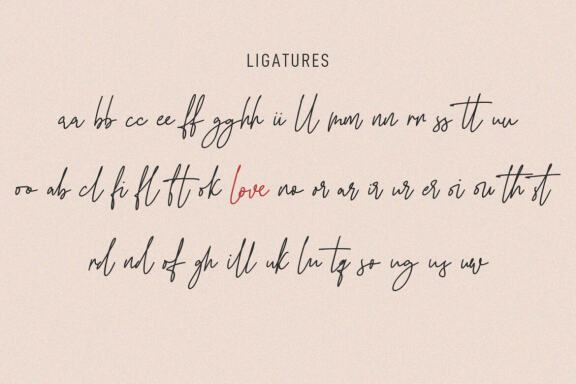 LIGATURES
aa bb cc ee ff gg hh ii ll mm nn rr ss tt uu
oo ab cl fi fl ft ok love no or ar ir ur er oi ou th st
rd nd of gh ill uk lu tq so ug us uw